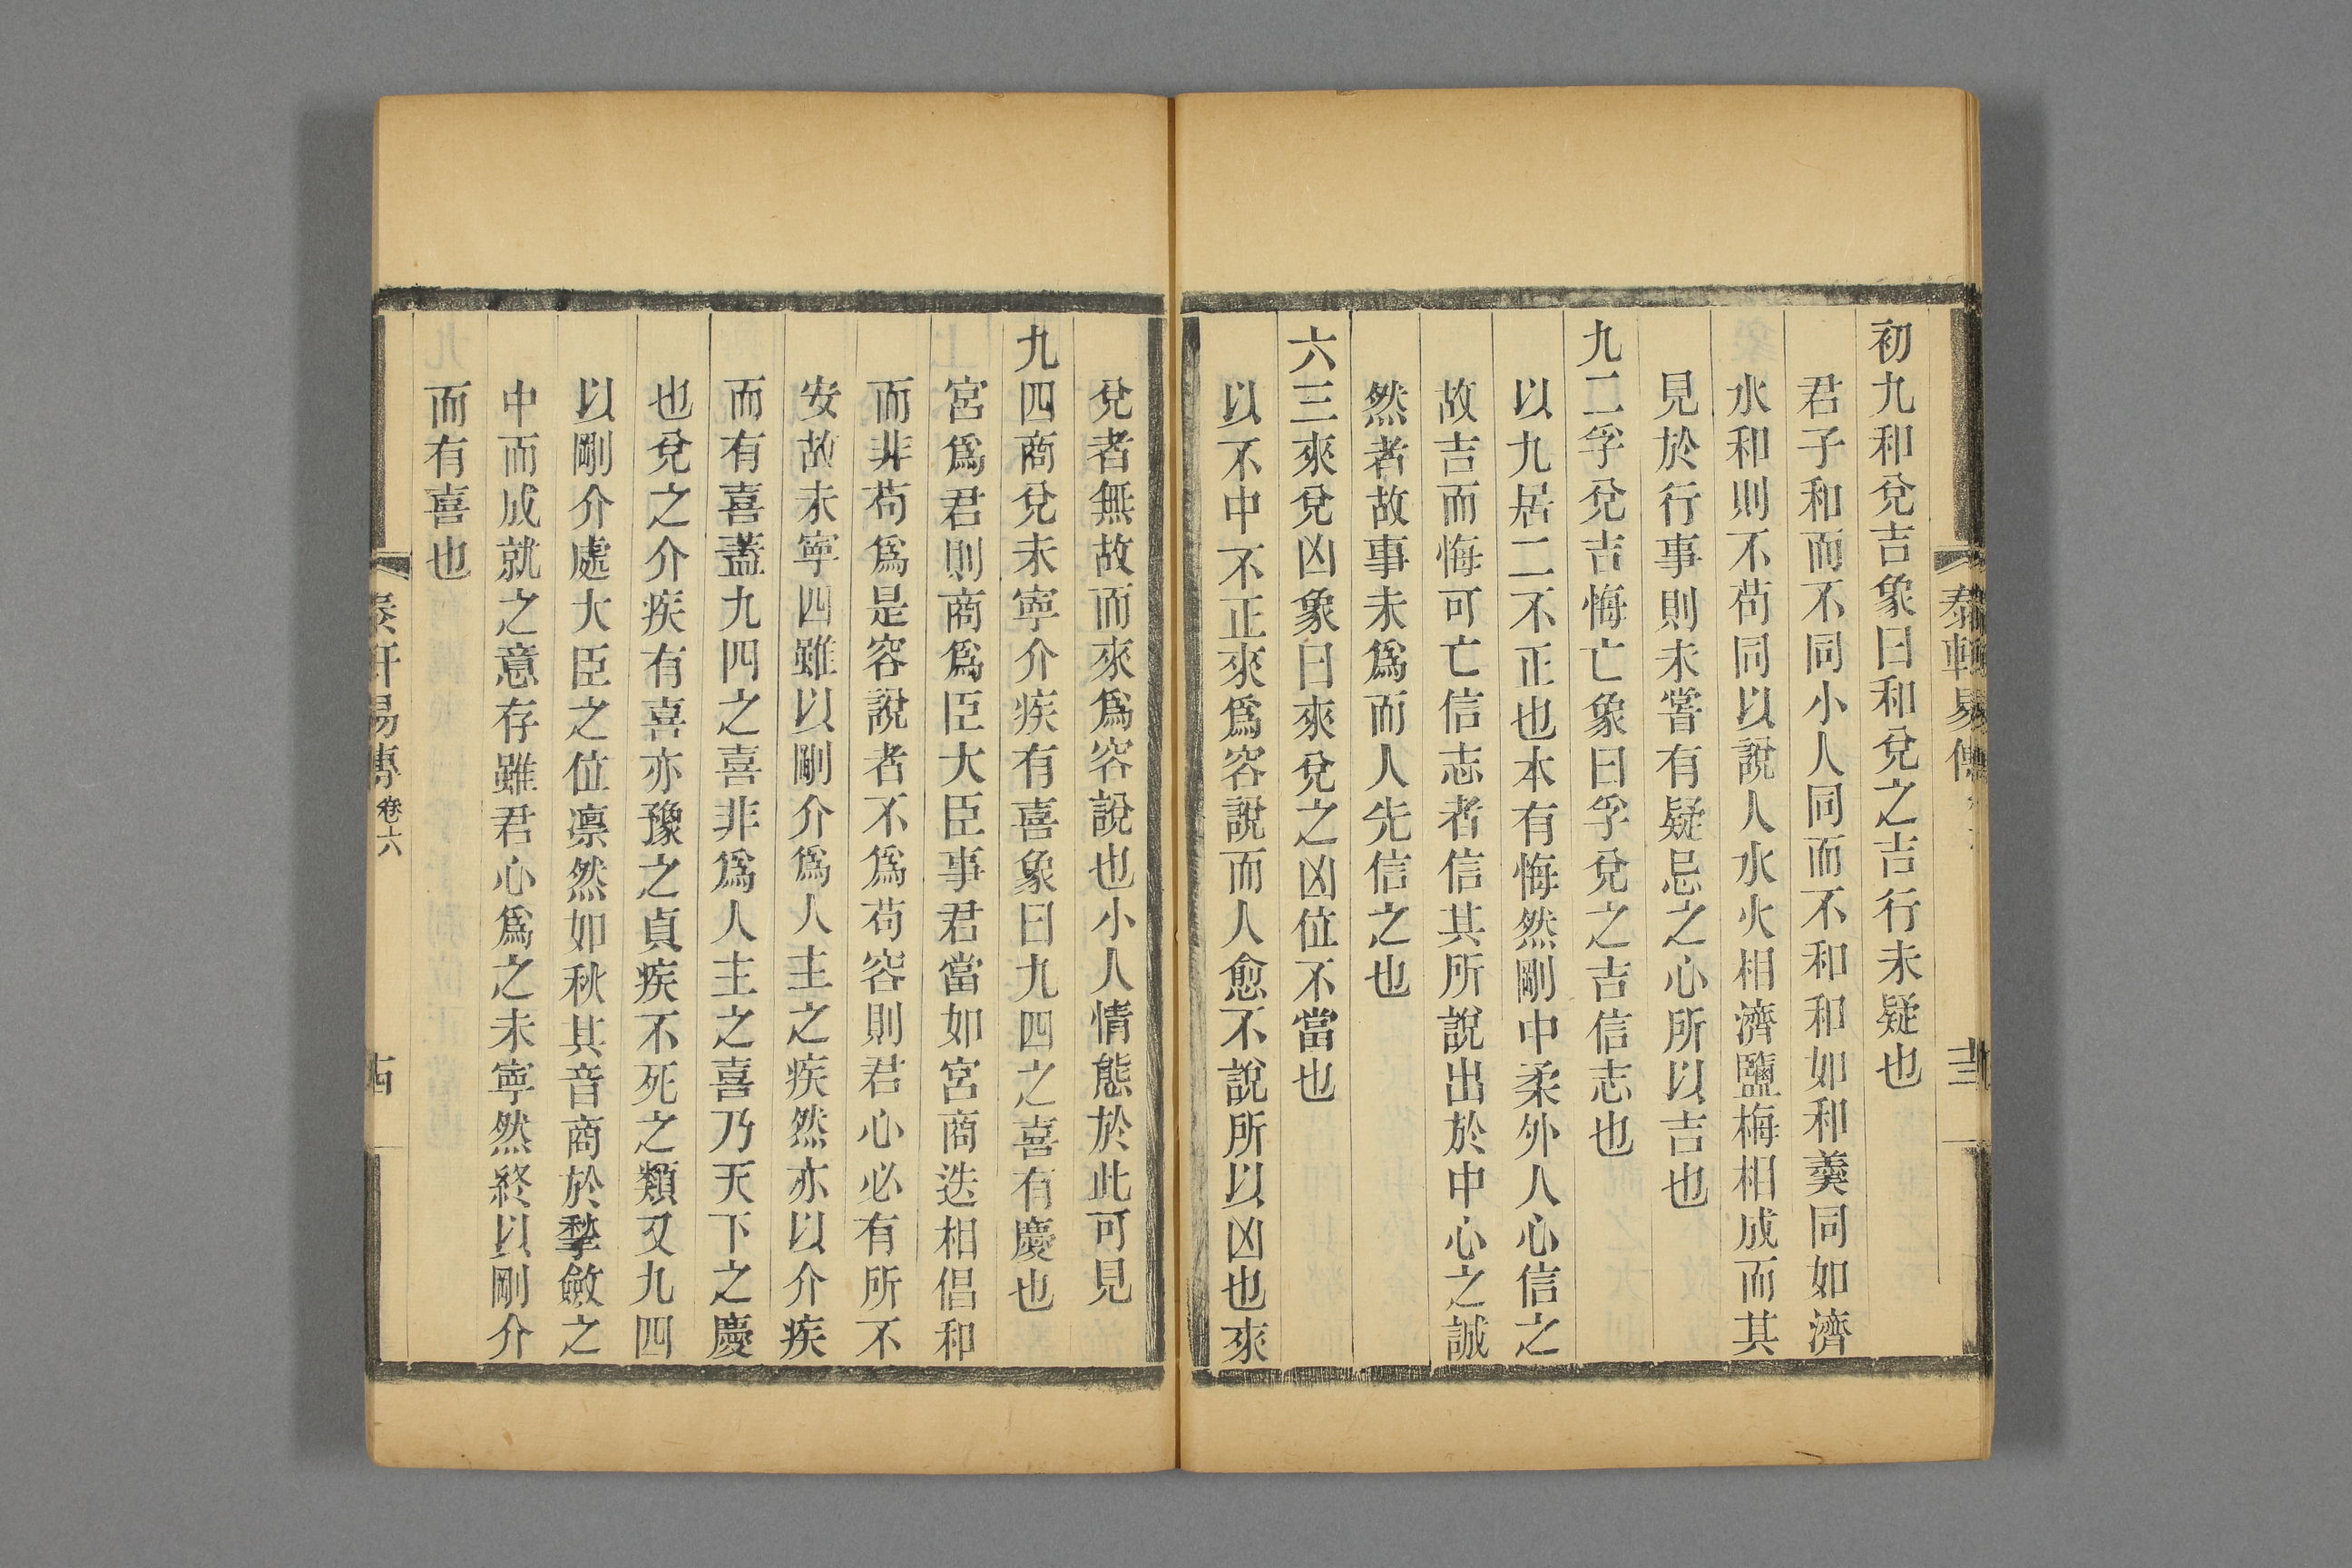 泰軒易傳
初九和兌吉象曰和兌之吉行未疑也
君子和而不同小人同而不和和如和羹同如濟
水和則不苟同以說人水火相濟鹽梅相成而其
見於行事則未嘗有疑忌之心所以吉也
九二孚兌吉悔亡象曰孚兌之吉信志也
以九居二不正也本有悔然剛中柔外人心信之
故吉而悔可亡信志者信其所說出於中心之誠
然者故事未爲而人先信之也
六三來兌凶象曰來兌之凶位不當也
以不中不正來爲容說而人愈不說所以凶也來
兌者無故而來爲容說也小人情態於此可見
九四商兌未寧介疾有喜象曰九四之喜有慶也
宮爲君則商爲臣大臣事君當如宮商迭相倡和
而非苟爲是容說者不爲苟容則君心必有所不
安故未寧四雖以剛介爲人主之疾然亦以介疾
而有喜蓋九四之喜非爲人主之喜乃天下之慶
也兌之介疾有喜亦豫之貞疾不死之類又九四
以剛介處大臣之位凛然如秋其音商於揫斂之
中而成就之意存雖君心爲之未寧然終以剛介
而有喜也
泰軒易傳 卷六